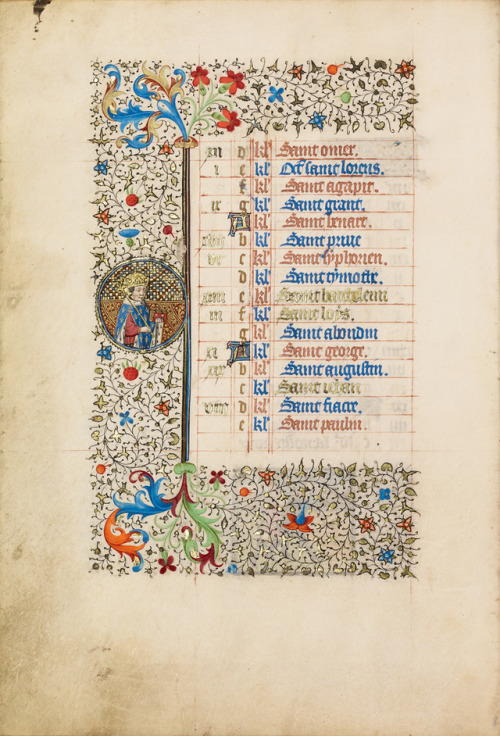 xii d kl' Saint omer.
i e kl' Oct' saint lorens.
f kl' Saint agapit.
ix g kl' Saint grant.
A kl' Saint benart.
xvii b kl' Saint priue
vi c kl' Saint syphorien.
d kl' Saint tymothe.
xiiii e kl' Saint
iii f kl' Saint loys.
g kl' Saint abondin
xi A kl' Saint george.
xix b kl' Saint augustin.
c kl' Saint iehan
viii d kl' Saint fiacre.
e kl' Saint paulin.